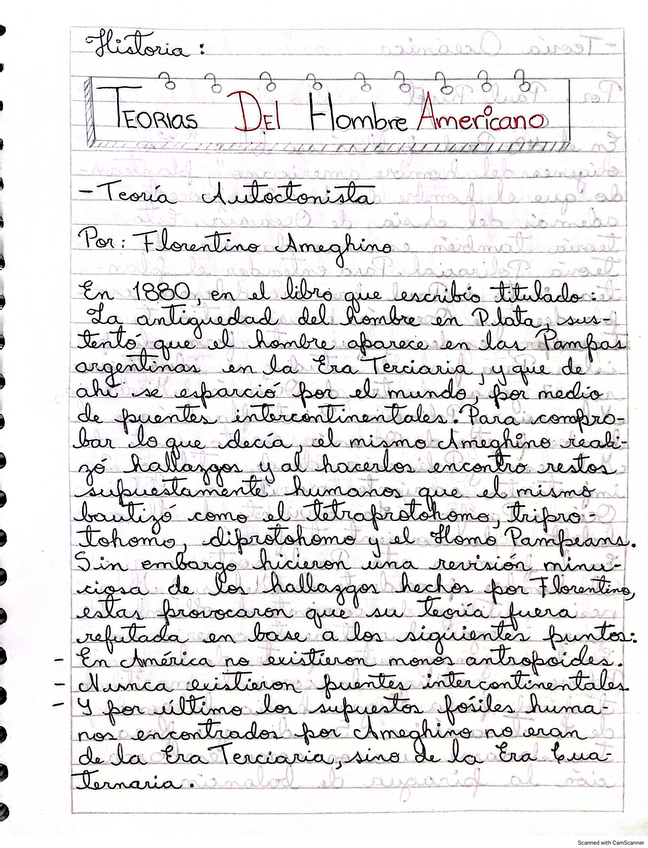 Historia :
TEORIAS DEl Hombre Americano
- Teoría Autoctonista
Por : Florentino Ameghino
En 1880, en el libro que escribio titulado :
La antiguedad del hombre en Plata, sus-
tentó que el hombre aparece en las Pampas
argentinas en la Era Terciaria, y que de
ahí se esparció por el mundo, por medio
de puentes intercontinentales. Para compro-
bar lo que decía, el mismo Ameghino reali-
zó hallazgos y al hacerlos encontro restos
supuestamente humanos que el mismo
bautizó como el tetraprotohomo, tripro-
tohomo, diprotohomo y el Homo Pampeans.
Sin embargo hicieron una revisión minu-
ciosa de los hallazgos hechos por Florentino,
estas provocaron que su teoría fuera
refutada en base a los siguientes puntos:
- En América no existieron monos antropoides.
- Nunca existieron puentes intercontinentales
- Y por último los supuestos fósiles huma-
nos encontrados por Ameghino no eran
de la Era Terciaria, sino de la Era Cua-
ternaria.
Scanned with CamScanner